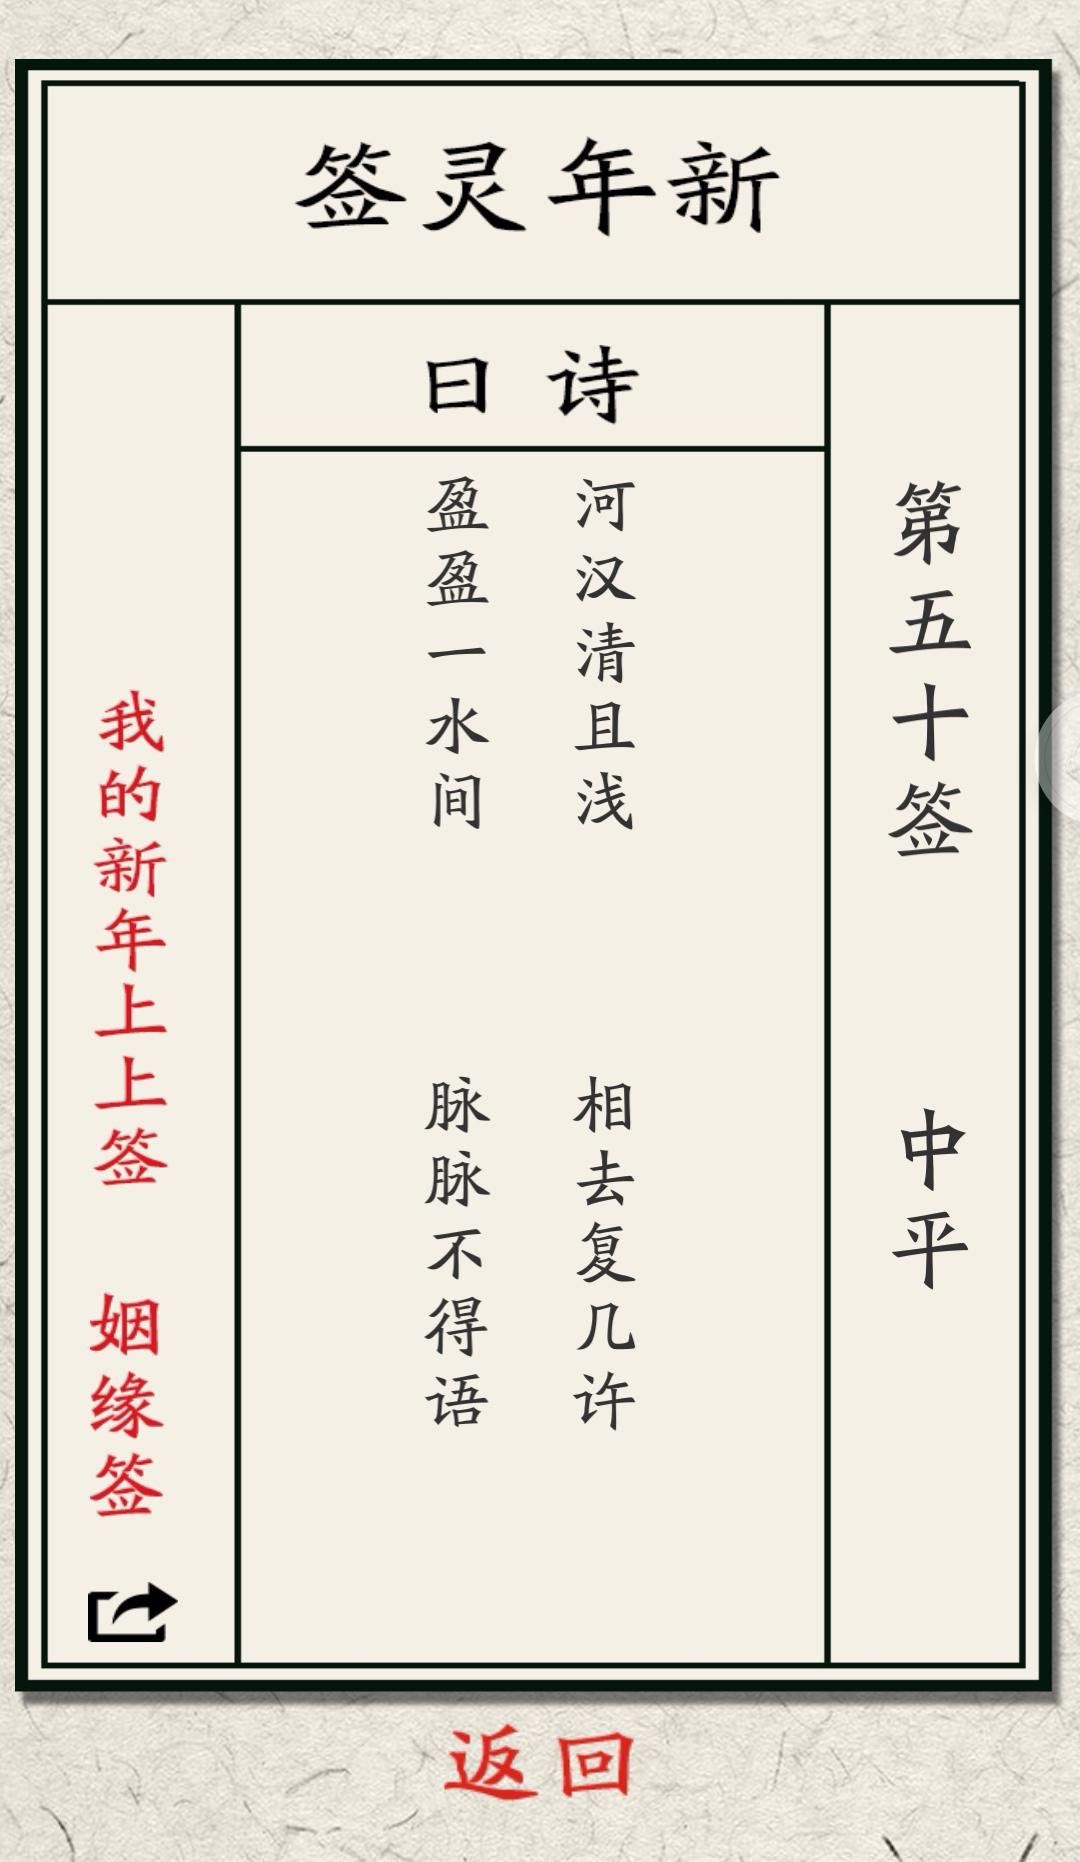 新年灵签
第五十签 中平
诗曰
河汉清且浅 相去复几许
盈盈一水间 脉脉不得语
我的新年上上签 姻缘签
返回